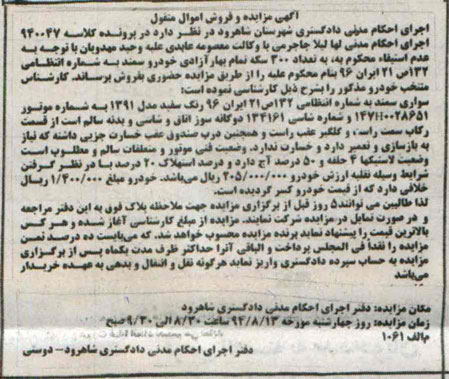 آگهی مزایده و فروش اموال منقول
اجرای احکام مدنی دادگستری شهرستان شاهرود در نظر دارد در پرونده کلاسه ۹۴۰۰۴۷
اجرای احکام مدنی لها لیلا جاجرمی با وکالت معصومه عابدی علیه وحید مهدویان با توجه به
عدم استیفاء محکوم به، به تعداد ۳۰۰ سکه تمام بهار آزادی خودرو سمند به شماره انتظامی
۱۳۲ص۲۱ ایران ۹۶ بنام محکوم علیه را از طریق مزایده حضوری بفروش برساند. کارشناس
منتخب خودرو مذکور را بشرح ذیل کارشناسی نموده است:
سواری سمند به شماره انتظامی ۱۳۲ص۲۱ ایران ۹۶ رنگ سفید مدل ۱۳۹۱ به شماره موتور
۱۴۷H۰۰۲۸۶۵۱ و شماره شاسی ۱۳۴۱۶۱ دوگانه سوز اتاق و شاسی و بدنه سالم است از قسمت
رکاب سمت راست و گلگیر عقب راست و همچنین درب صندوق عقب خسارت جزیی داشته که نیاز
به بازسازی و تعمیر دارد و خسارت ندارد. وضعیت فنی موتور و متعلقات سالم و مطلوب است
وضعیت لاستیکها ۴ حلقه و ۵۰ درصد آج دارد و درصد استهلاک ۲۰ درصد با در نظر گرفتن
شرایط وسیله نقلیه ارزش خودرو ۲۰۵/۰۰۰/۰۰۰ ریال می‌باشد. خودرو مبلغ ۱/۴۰۰/۰۰۰ ریال
خلافی دارد که از قیمت خودرو کسر گردیده است.
لذا طالبین می توانند ۵ روز قبل از برگزاری مزایده جهت ملاحظه پلاک فوق به این دفتر مراجعه
و در صورت تمایل در مزایده شرکت نمایند. مزایده از مبلغ کارشناسی آغاز شده و هر کس
بالاترین قیمت را پیشنهاد نماید برنده مزایده محسوب خواهد شد. که می‌بایست ده درصد ثمن
مزایده را نقداً فی المجلس پرداخت و الباقی آنرا حداکثر ظرف مدت یکماه پس از برگزاری
مزایده به حساب سپرده دادگستری واریز نماید هرگونه نقل و انتقال و بدهی به عهده خریدار
می‌باشد
مکان مزایده: دفتر اجرای احکام مدنی دادگستری شاهرود
زمان مزایده: روز چهارشنبه مورخه ۹۴/۸/۱۳ ساعت ۸/۳۰ الی ۹/۳۰ صبح
م‌الف ۱۰۶۱
دفتر اجرای احکام مدنی دادگستری شاهرود – دوستی